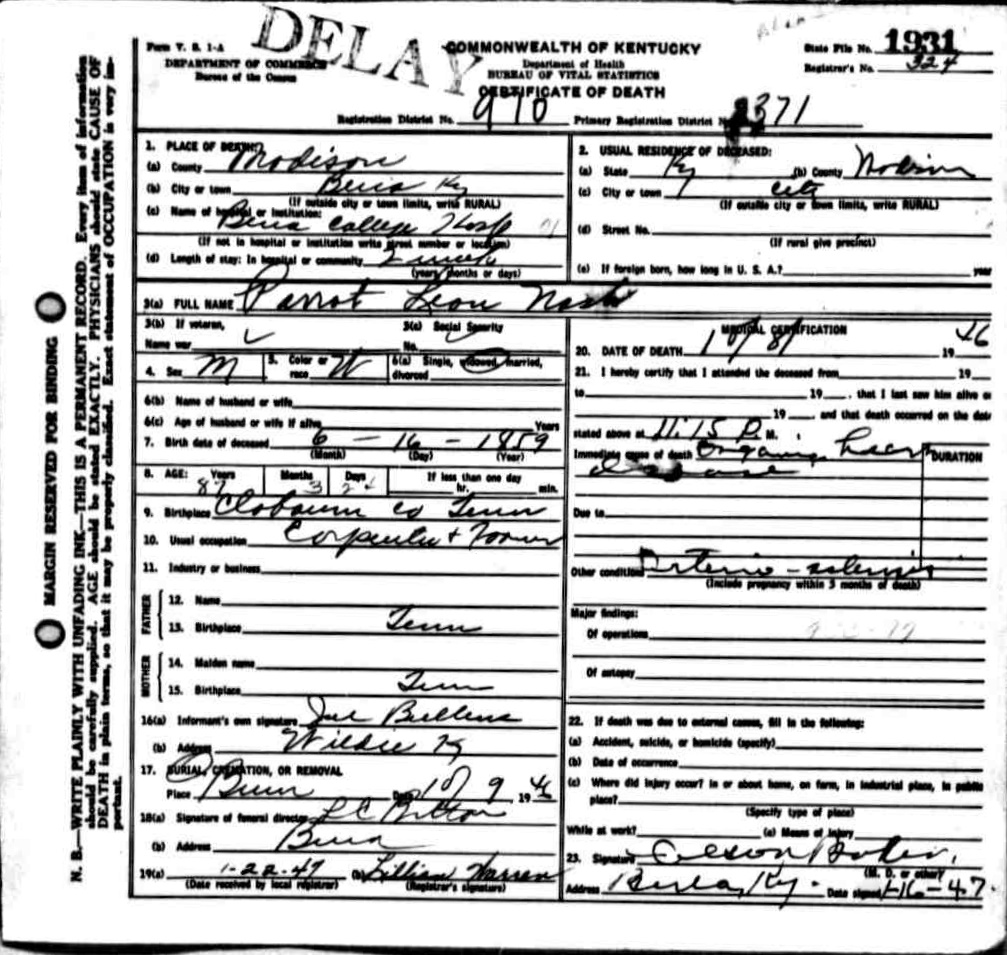 DELAY
Form V. S. 1-A
DEPARTMENT OF COMMERCE
Bureau of the Census
COMMONWEALTH OF KENTUCKY
Department of Health
BUREAU OF VITAL STATISTICS
CERTIFICATE OF DEATH
State File No. 1931
Registrar's No. 324
Registration District No. 970 Primary Registration District No. 371
MARGIN RESERVED FOR BINDING
N. B.—WRITE PLAINLY WITH UNFADING INK—THIS IS A PERMANENT RECORD. Every item of information
should be carefully supplied. AGE should be stated EXACTLY. PHYSICIANS should state CAUSE OF
DEATH in plain terms, so that it may be properly classified. Exact statement of OCCUPATION is very im-
portant.
1. PLACE OF DEATH:
(a) County Madison
(b) City or town Berea Ky
(If outside city or town limits, write RURAL)
(c) Name of hospital or institution:
Berea College Hosp
(If not in hospital or institution write street number or location)
(d) Length of stay: In hospital or community 2 weeks
(years, months or days)
2. USUAL RESIDENCE OF DECEASED:
(a) State Ky (b) County Madison
(c) City or town city
(If outside city or town limits, write RURAL)
(d) Street No.
(If rural give precinct)
(e) If foreign born, how long in U. S. A.? year
3(a) FULL NAME Parrot Leon Nash
3(b) If veteran,
Name war
3(c) Social Security
No.
4. Sex M 5. Color or race W 6(a) Single, widowed, married,
divorced
6(b) Name of husband or wife
6(c) Age of husband or wife if alive Years
7. Birth date of deceased 6 - 16 - 1859
(Month) (Day) (Year)
8. AGE: Years 87 Months 3 Days If less than one day
hr. min.
9. Birthplace co Tenn
10. Usual occupation Carpenter + Farmer
11. Industry or business
FATHER
12. Name
13. Birthplace Tenn
MOTHER
14. Maiden name
15. Birthplace Tenn
16(a) Informant's own signature Bullens
(b) Address Wildie Ky
17. BURIAL, CREMATION, OR REMOVAL
Place Date 10/ 9 1946
18(a) Signature of funeral director
(b) Address Berea
19(a) 1-22-47 (b) Lillian Warren
(Date received by local registrar) (Registrar's signature)
MEDICAL CERTIFICATION
20. DATE OF DEATH 10/8/ 1946
21. I hereby certify that I attended the deceased from 19
to 19 , that I last saw him alive on
19 and that death occurred on the date
stated above at 11:15 P. M.
Immediate cause of death Organic heart
disease
DURATION
Due to
Other conditions Arterio-sclerosis
(Include pregnancy within 3 months of death)
Major findings:
Of operations
Of autopsy
22. If death was due to external causes, fill in the following:
(a) Accident, suicide, or homicide (specify)
(b) Date of occurrence
(c) Where did injury occur? In or about home, on farm, in industrial place, in public
place?
(Specify type of place)
While at work? (e) Means of injury
23. Signature Baker
(M. D. or other)
Address Berea, Ky. Date signed 1-16-47